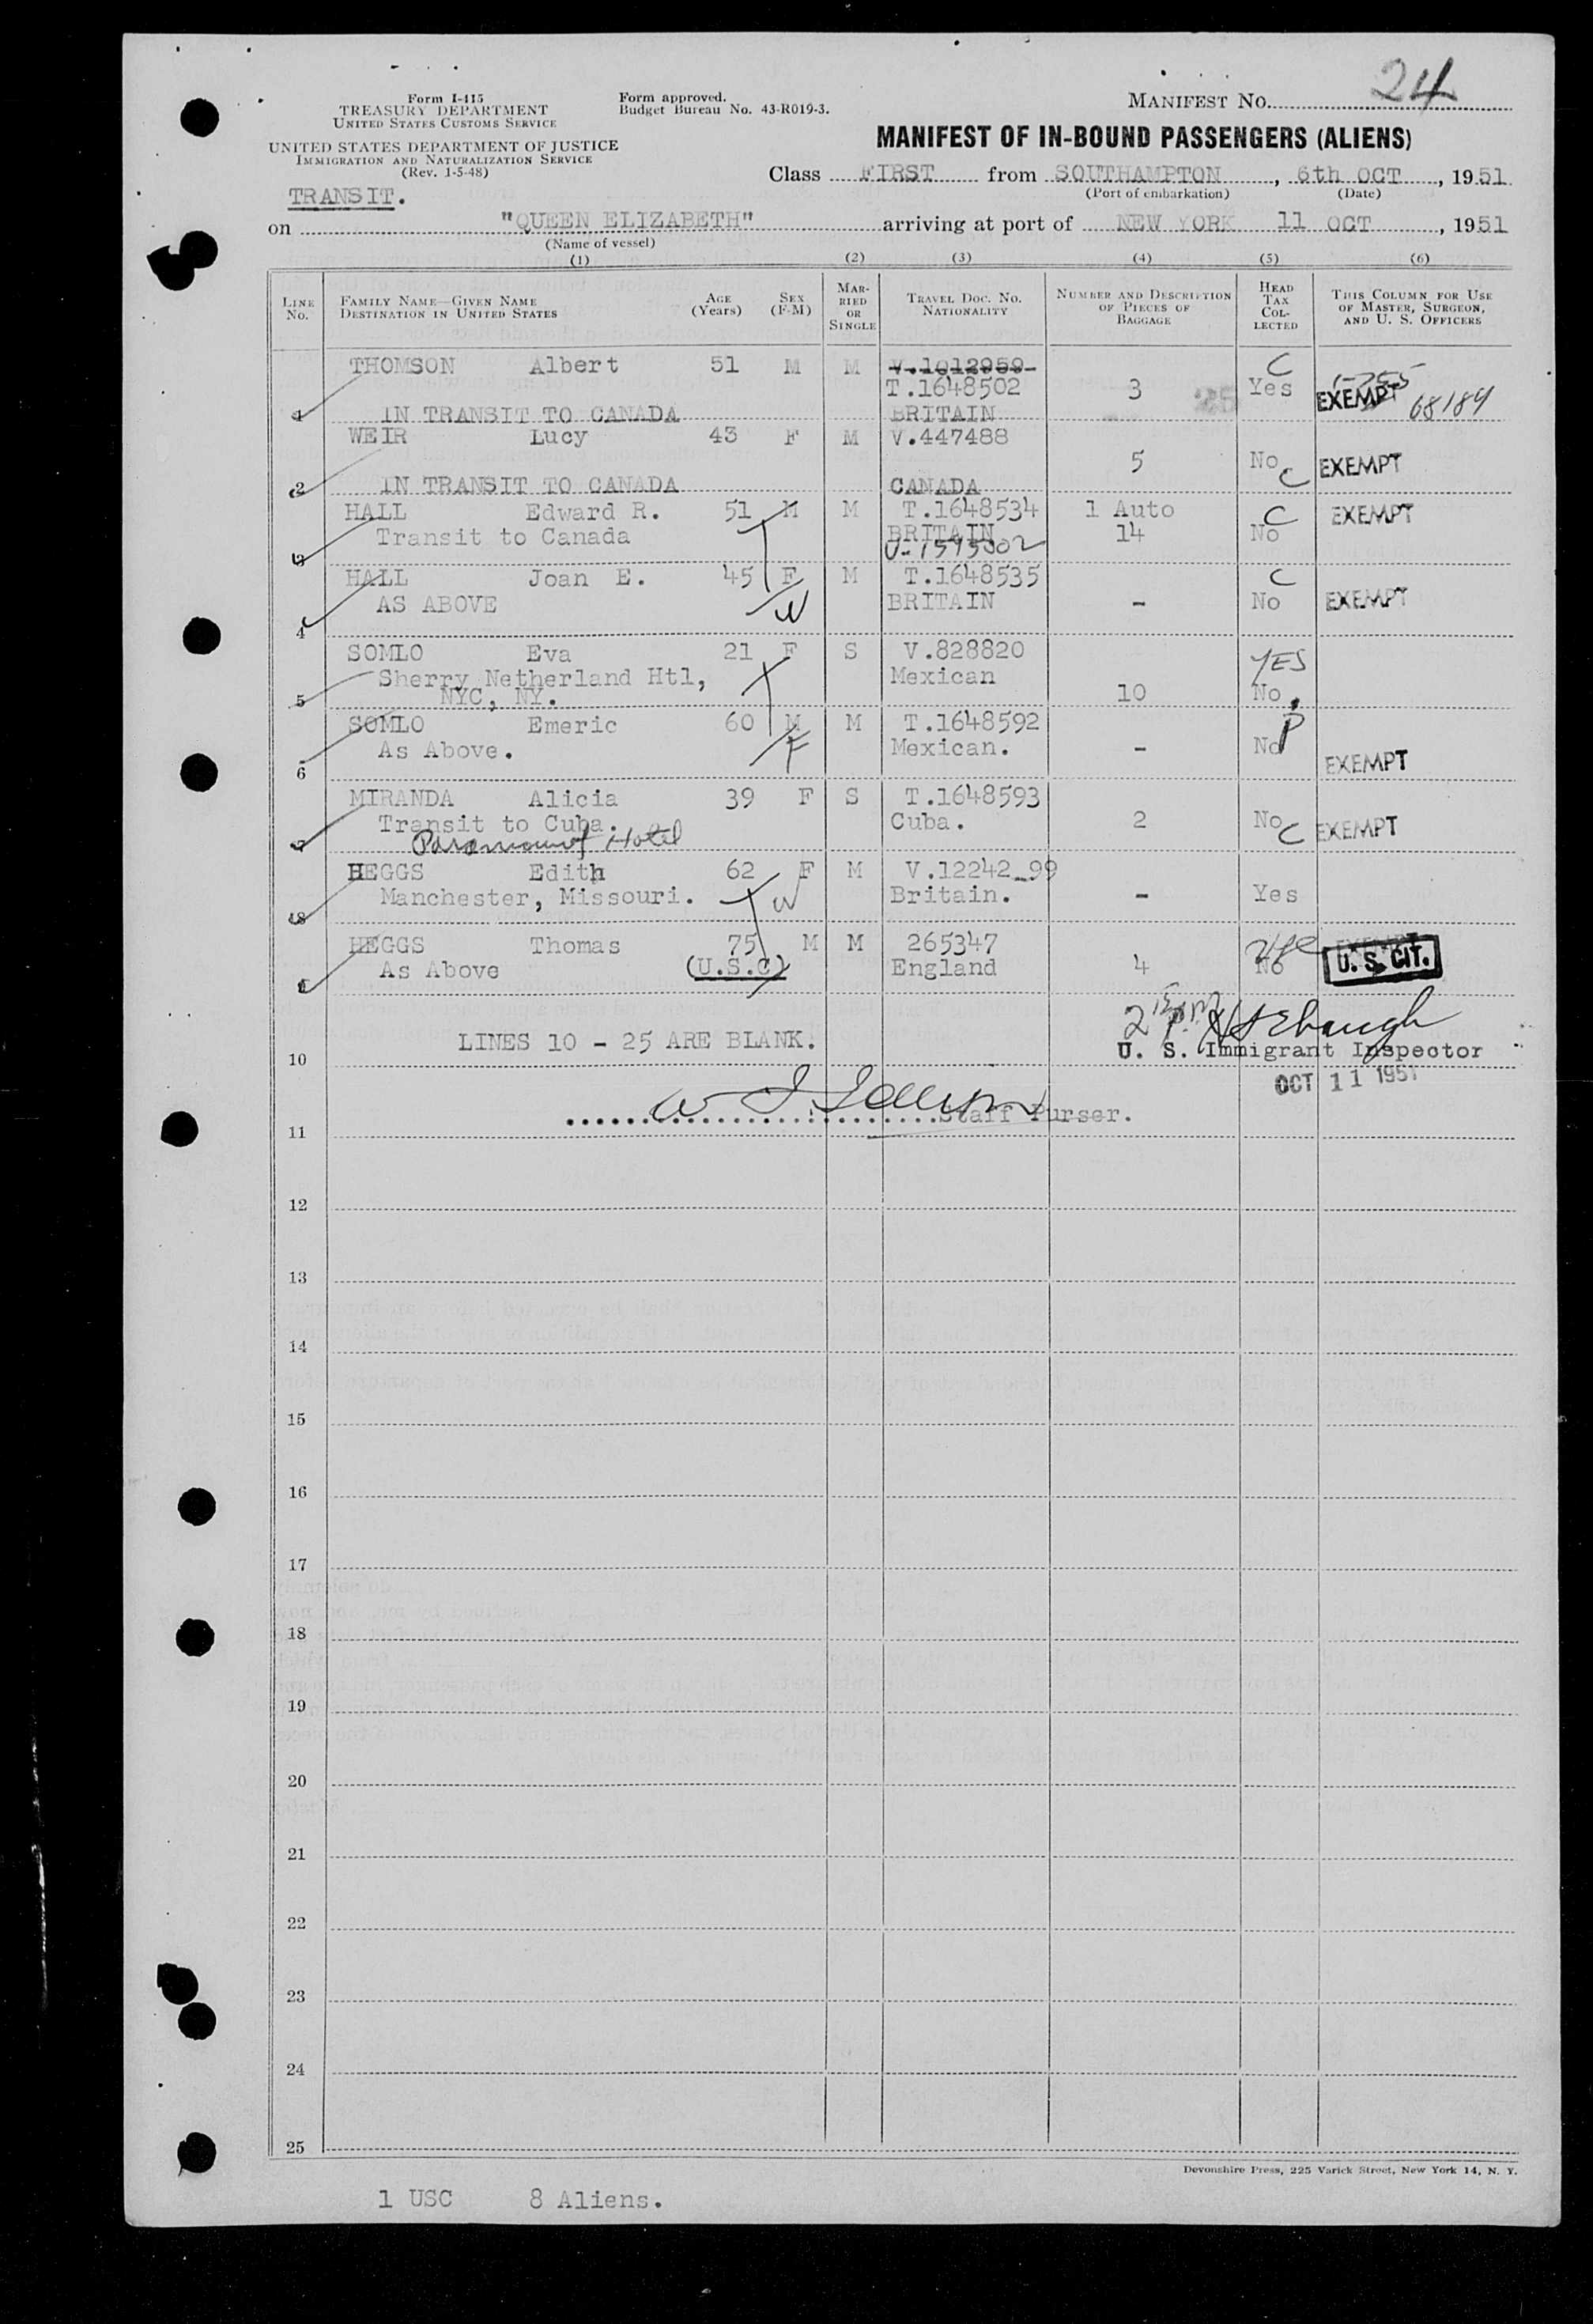 24
Form I-415
TREASURY DEPARTMENT
UNITED STATES CUSTOMS SERVICE
UNITED STATES DEPARTMENT OF JUSTICE
IMMIGRATION AND NATURALIZATION SERVICE
(Rev. 1-5-48)
Form approved.
Budget Bureau No. 43-R019-3.
MANIFEST NO.
MANIFEST OF IN-BOUND PASSENGERS (ALIENS)
Class FIRST from SOUTHAMPTON, 6th OCT, 1951
(Port of embarkation) (Date)
TRANSIT.
on "QUEEN ELIZABETH" arriving at port of NEW YORK 11 OCT, 1951
(Name of vessel)
(1) (2) (3) (4) (5) (6)
LINE No.
FAMILY NAME—GIVEN NAME
DESTINATION IN UNITED STATES
AGE (Years)
SEX (F-M)
MARRIED OR SINGLE
TRAVEL DOC. NO. NATIONALITY
NUMBER AND DESCRIPTION OF PIECES OF BAGGAGE
HEAD TAX COLLECTED
THIS COLUMN FOR USE OF MASTER, SURGEON, AND U. S. OFFICERS
THOMSON Albert 51 M M V.1012959 C
T.1648502 3 25 Yes EXEMPT 68184
1 IN TRANSIT TO CANADA BRITAIN
WEIR Lucy 43 F M V.447488
5 No C EXEMPT
2 IN TRANSIT TO CANADA CANADA
HALL Edward R. 51 M M T.1648534 1 Auto C EXEMPT
Transit to Canada BRITAIN 14 No
3 V-1595002
HALL Joan E. 45 F M T.1648535 C
AS ABOVE W BRITAIN - No EXEMPT
4
SOMLO Eva 21 F S V.828820 YES
Sherry Netherland Htl, Mexican
5 NYC, NY. 10 No.
SOMLO Emeric 60 M M T.1648592 P
As Above. F Mexican. - No
6 EXEMPT
MIRANDA Alicia 39 F S T.1648593
Transit to Cuba. Cuba. 2 No C EXEMPT
7 Paramount Hotel
HEGGS Edith 62 F M V.12242_99
Manchester, Missouri. W Britain. - Yes
8
HEGGS Thomas 75 M M 265347
As Above (U.S.C) England 4 No U. S. CIT.
9
LINES 10 - 25 ARE BLANK.
10 U. S. Immigrant Inspector
OCT 11 1951
Staff Purser.
11
12
13
14
15
16
17
18
19
20
21
22
23
24
25
Devonshire Press, 225 Varick Street, New York 14, N. Y.
1 USC 8 Aliens.